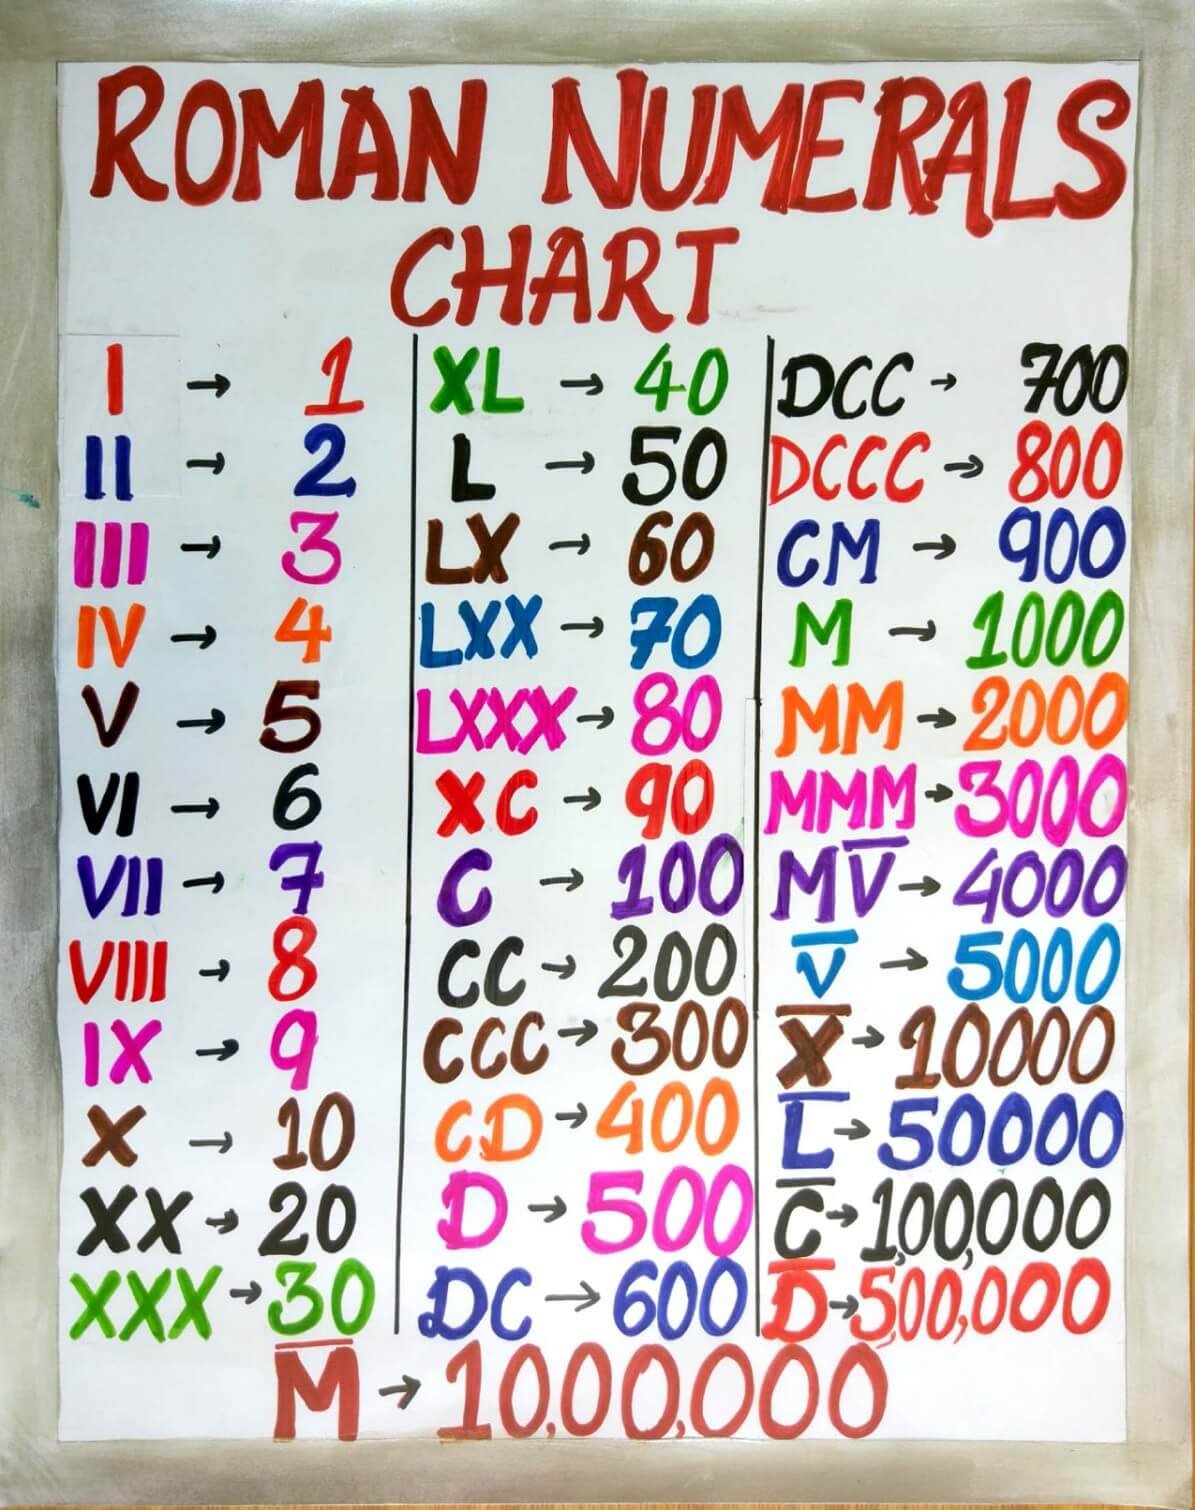 ROMAN NUMERALS
CHART
I → 1
II → 2
III → 3
IV → 4
V → 5
VI → 6
VII → 7
VIII → 8
IX → 9
X → 10
XX → 20
XXX → 30
XL → 40
L → 50
LX → 60
LXX → 70
LXXX → 80
XC → 90
C → 100
CC → 200
CCC → 300
CD → 400
D → 500
DC → 600
DCC → 700
DCCC → 800
CM → 900
M → 1000
MM → 2000
MMM → 3000
MV̅ → 4000
V̅ → 5000
X̅ → 10000
L̅ → 50000
C̅ → 1,00,000
D̅ → 5,00,000
M̅ → 10,00,000